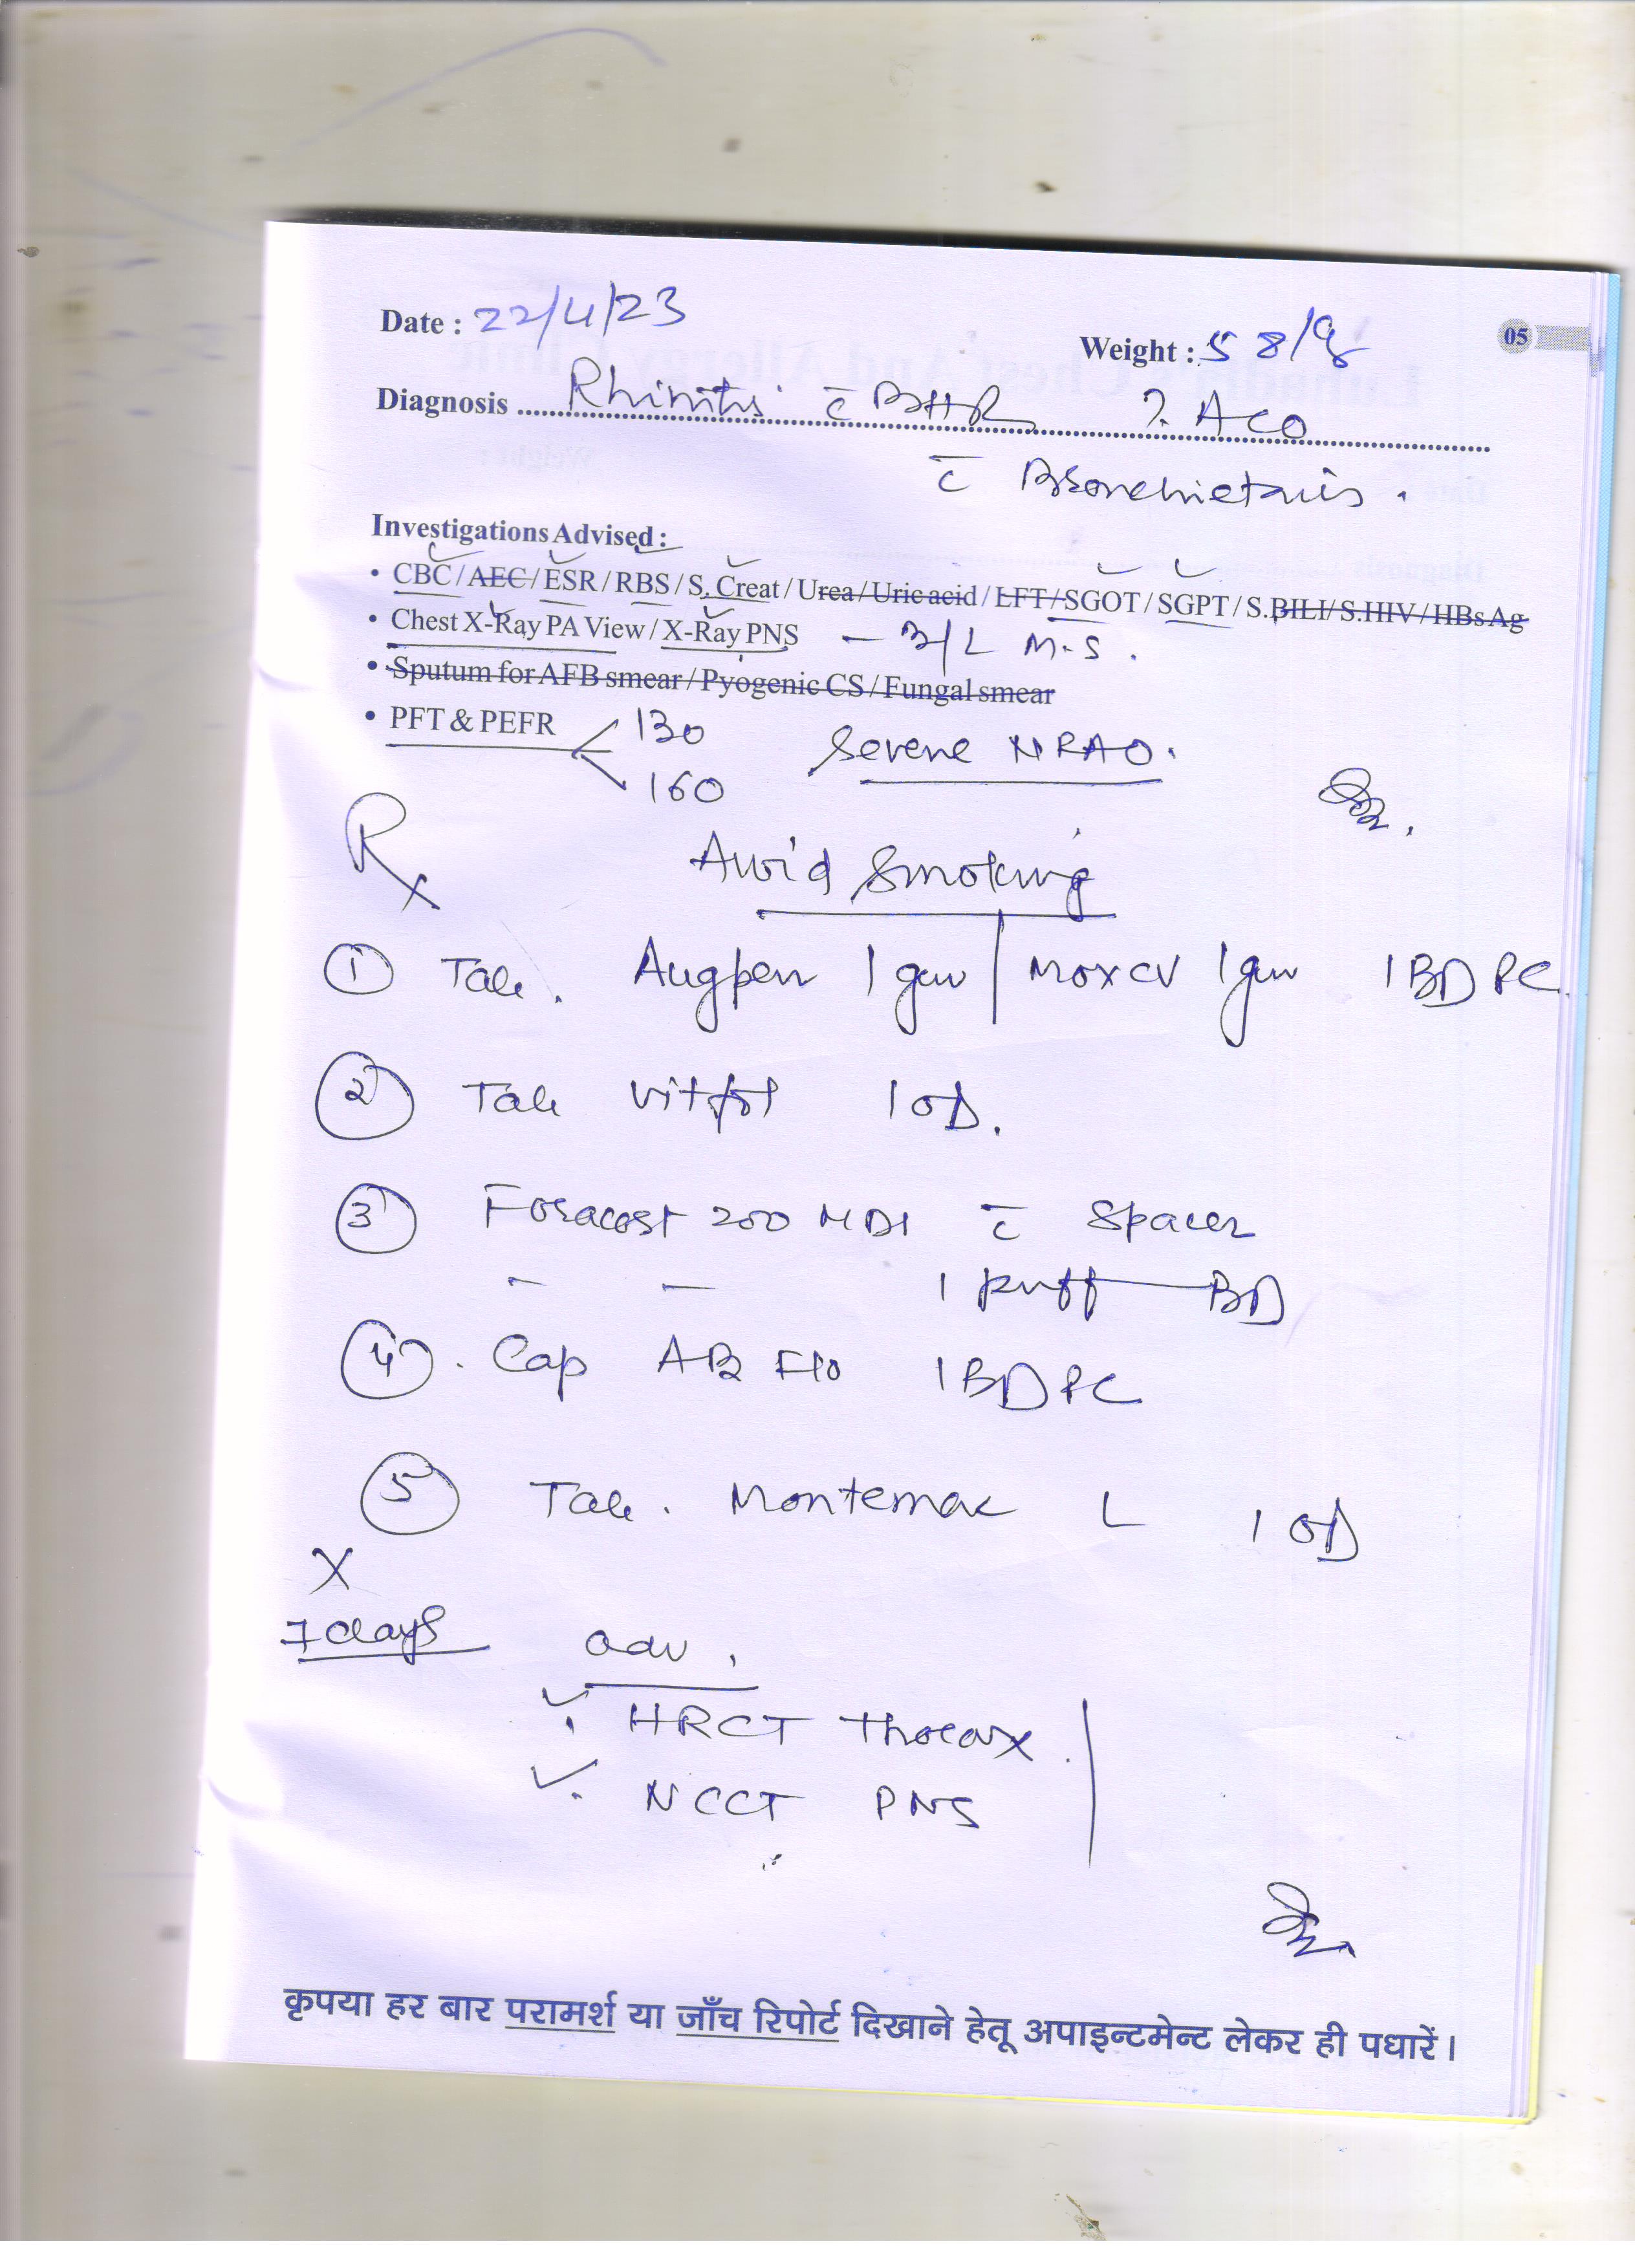 05
Date : 22/4/23
Weight : 58/kg
Diagnosis Rhinitis c̄ BHR ? ACO
c̄ Bronchietasis .
Investigations Advised :
• CBC / AEC / ESR / RBS / S. Creat / Urea / Uric acid / LFT / SGOT / SGPT / S.BILI / S.HIV / HBsAg
• Chest X-Ray PA View / X-Ray PNS – B/L M.S .
• Sputum for AFB smear / Pyogenic CS / Fungal smear
• PFT & PEFR < 130
160
Severe NRAO.
Rx
Avoid Smoking
① Tab. Augpen 1gm | Moxcv 1gm 1 BD PC.
② Tab 1 OD.
③ Foracost 200 MDI c̄ Spacer
– – 1 puff — BD
④ . Cap AB Flo 1 BD PC
⑤ Tab. Montemac L 1 OD
X
7 days
adv .
✓. HRCT Thorax .
✓. NCCT PNS
कृपया हर बार परामर्श या जाँच रिपोर्ट दिखाने हेतू अपाइन्टमेन्ट लेकर ही पधारें।